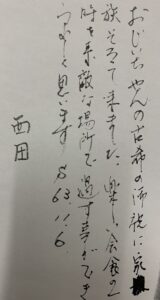 おじいちゃんの古希の御祝に家
族そろって来ました。楽しい会食の
時を素敵な場所で過す事ができ
うれしく思います。S63.11.6.
西田